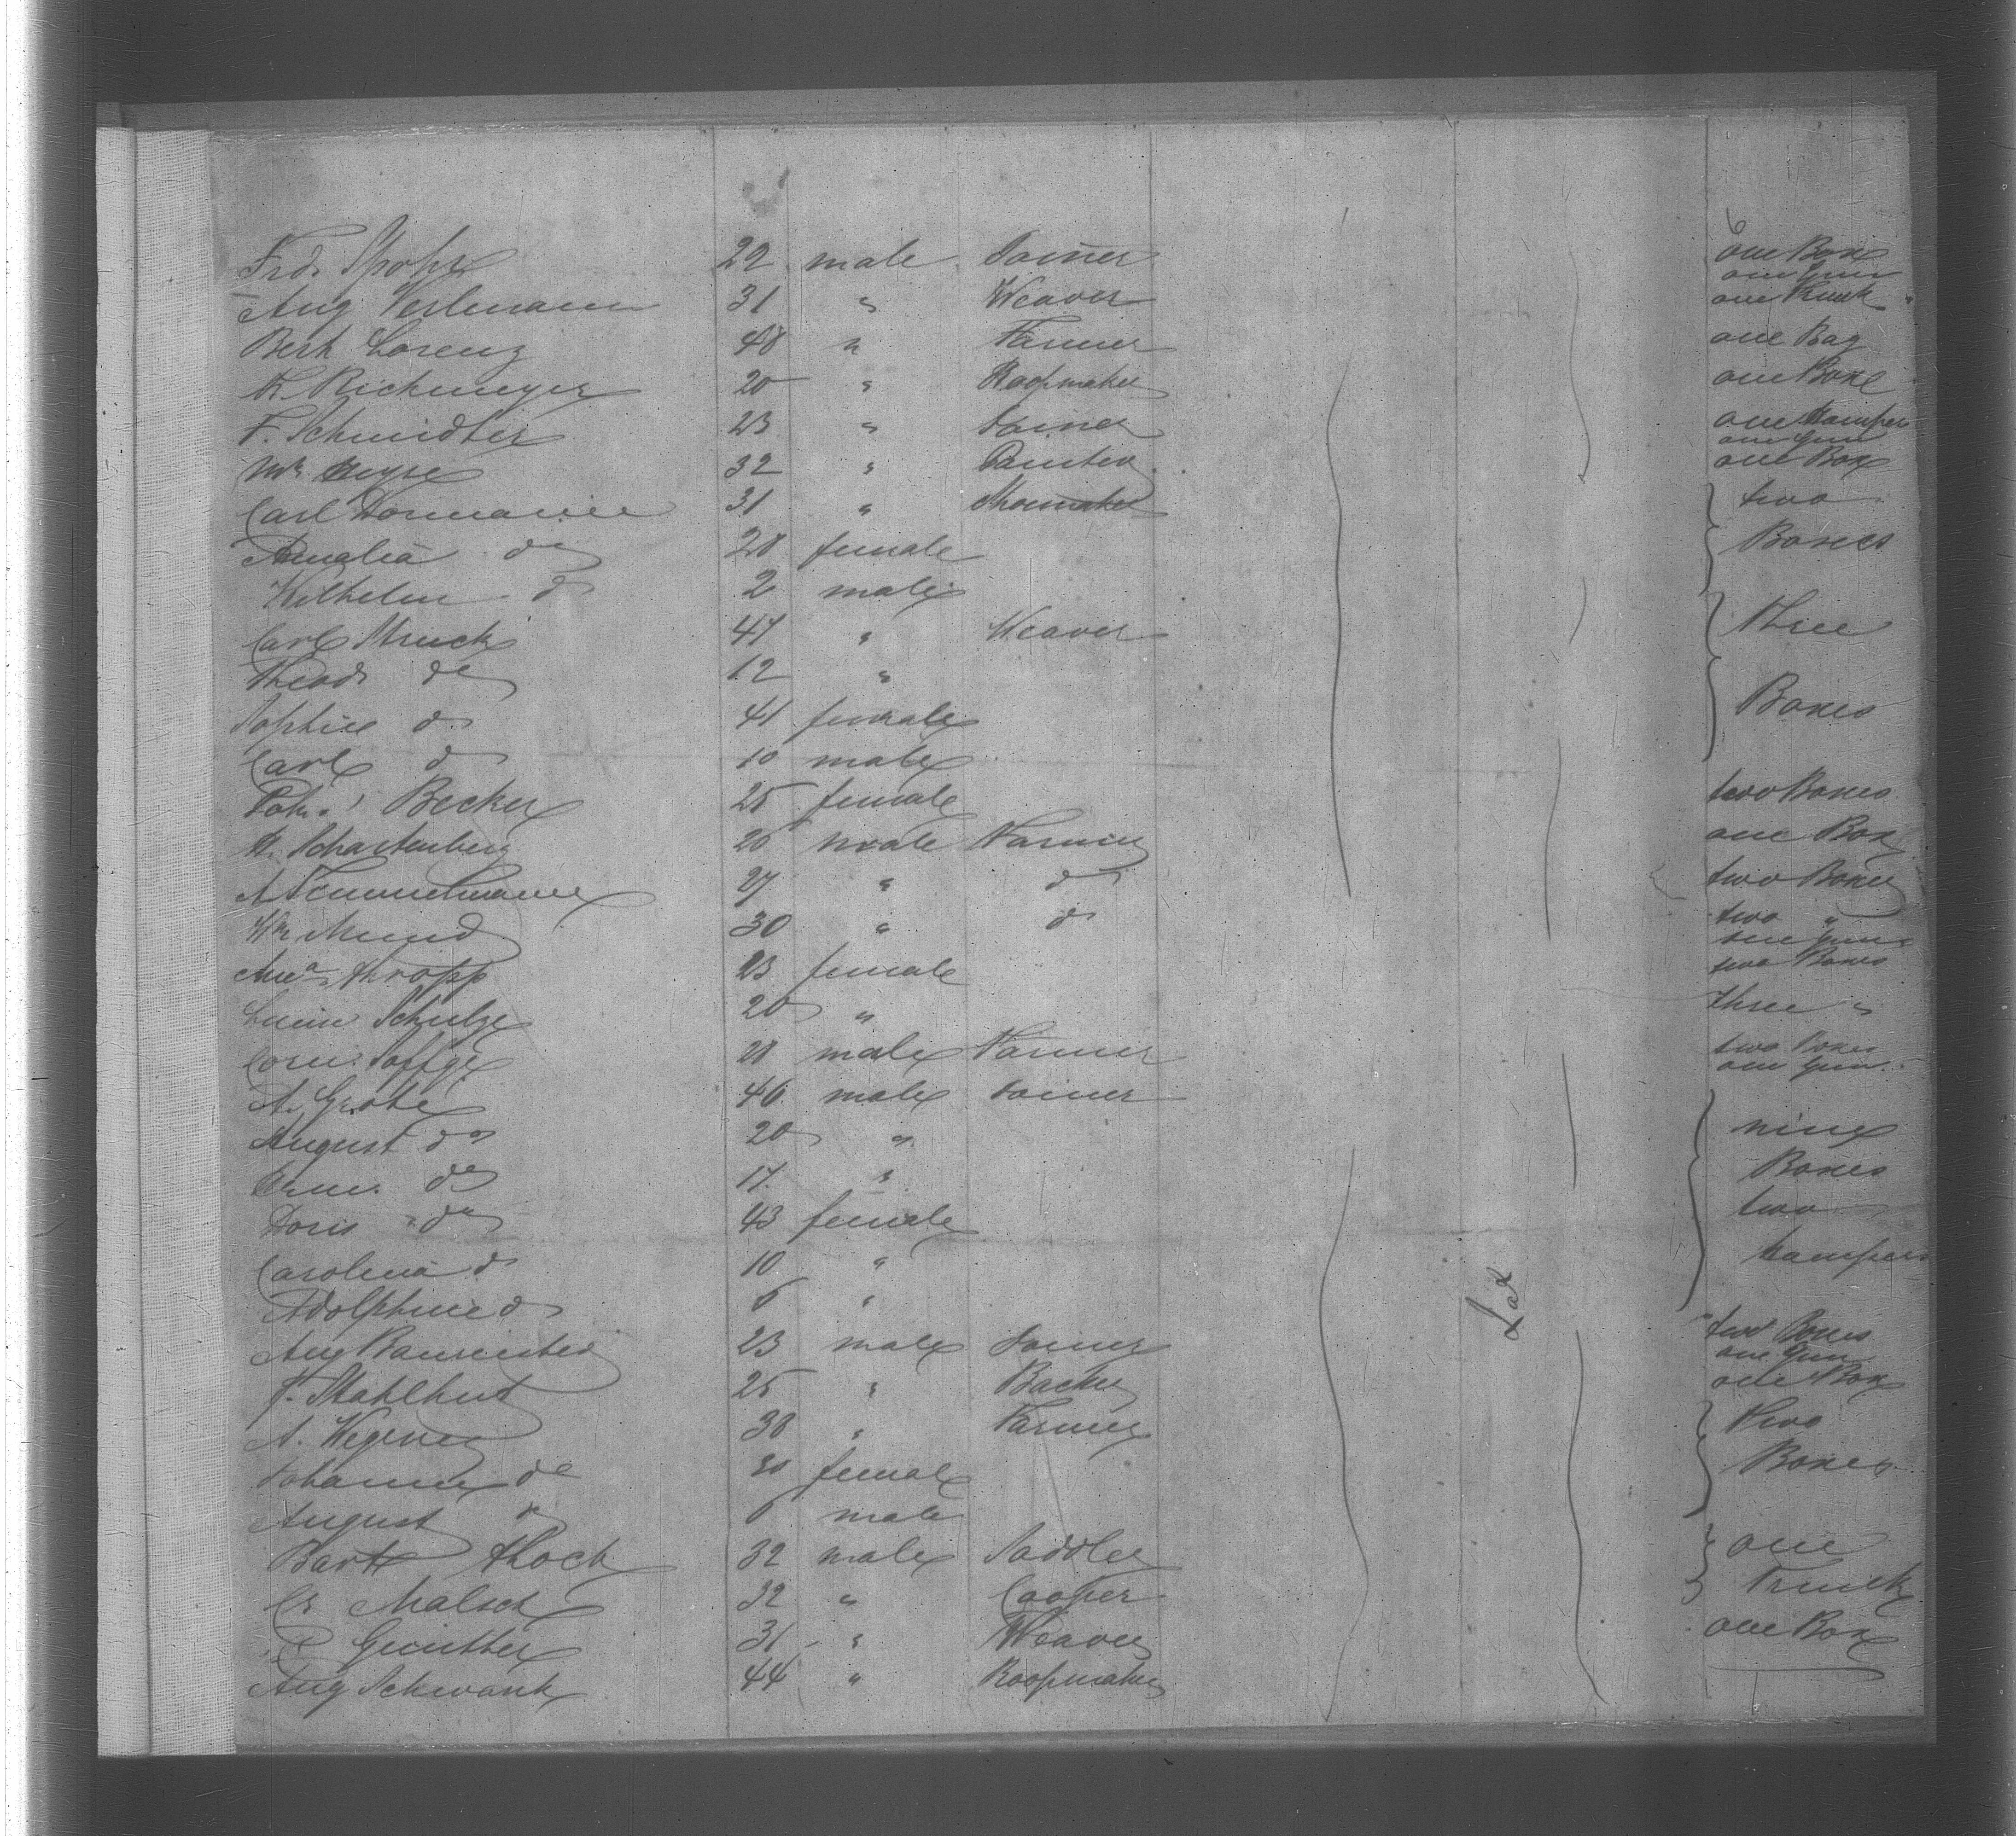 Frd. Spohr 22 male Joiner one Box one Gun
Aug 31 " Weaver one Trunk "
Bert Lorenz 48 " Farmer one Bag
H. Richmeyer 20 " Roopmaker one Boxe
F. Schmidter 23 " Joiner one Hamper one gun
Wm Heyse 32 " Painter one Box
Carl Dormann 31 " Shoemaker two
Amalia do 28 female Boxes
Wilhelm do 2 male
Carl Struck 47 " Weaver three
Theod. do 12 "
Sophie do 41 female Boxes
Carl do 10 male
Joh. Becker 25 female two Boxes
H. Schartenberg 20 male Farmer one Box
27 " do two Boxes
Wm Mund 30 " do two " one gun
Kropp 23 female two Boxes
Schulze 20 " three "
28 male Farmer two Boxes one Gun
A. Grote 46 male Joiner
August do 20 " nine
do 17 " Boxes
Doris do 43 female two
Carolina do 10 " Hampers
Adolphine do 6 "
Aug Baumeister 23 male Joiner two Boxes one Gun
F. Stahlhut 25 " Backer one Box
A. Wegener 38 " Farmer two
Johanne do 30 female Boxes
August do 6 male
Bart Koch 32 male Saddler one
Cr Malsch 32 " Cooper Trunk
Gunther 31 " Weaver one Box
Aug Schwank 44 " Roopmaker